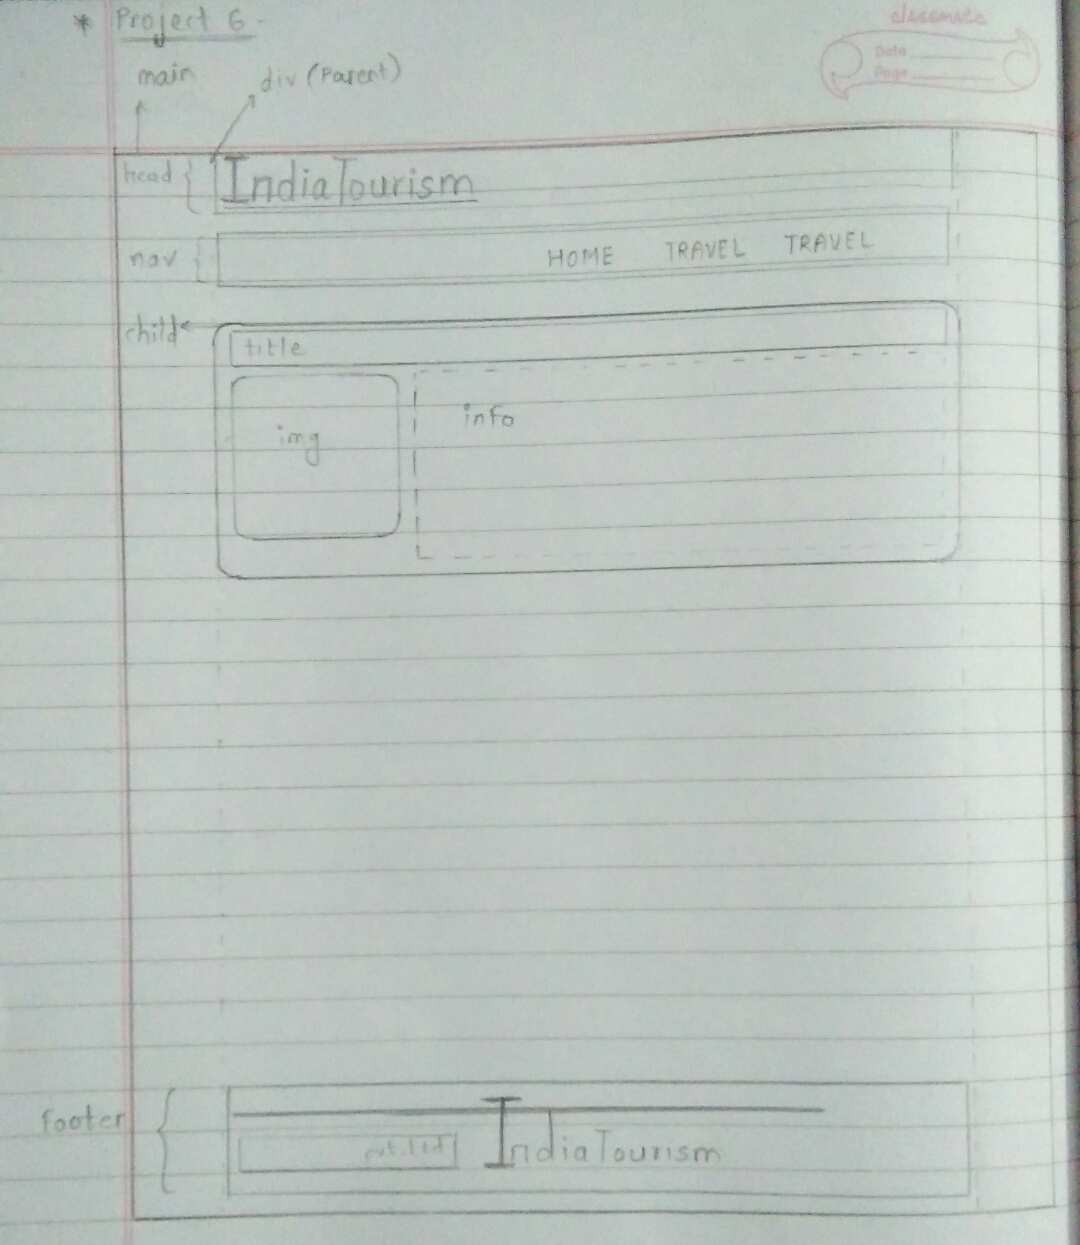 * Project 6 -
classmate
Date
Page
main
div (Parent)
head { IndiaTourism
nav { HOME TRAVEL TRAVEL
child
title
img
info
footer {
pvt.Ltd IndiaTourism